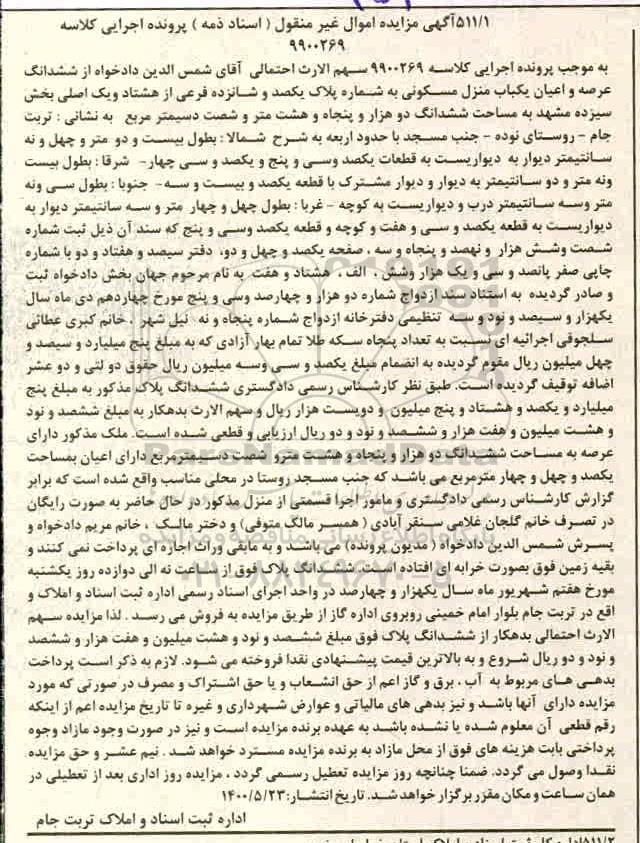 ۵۱۱/۱آگهی مزایده اموال غیر منقول ( اسناد ذمه ) پرونده اجرایی کلاسه
۹۹۰۰۲۶۹
به موجب پرونده اجرایی کلاسه ۹۹۰۰۲۶۹ سهم الارث احتمالی آقای شمس الدین دادخواه از ششدانگ
عرصه و اعیان یکباب منزل مسکونی به شماره پلاک یکصد و شانزده فرعی از هشتاد ویک اصلی بخش
سیزده مشهد به مساحت ششدانگ دو هزار و پنجاه و هشت متر و شصت دسیمتر مربع به نشانی : تربت
جام - روستای نوده - جنب مسجد با حدود اربعه به شرح شمالا : بطول بیست و دو متر و چهل و نه
سانتیمتر دیوار به دیواریست به قطعات یکصد وسی و پنج و یکصد و سی چهار- شرقا : بطول بیست
ونه متر و دو سانتیمتر به دیوار و دیوار مشترک با قطعه یکصد و بیست و سه- جنوبا : بطول سی ونه
متر وسه سانتیمتر درب و دیواریست به کوچه - غربا : بطول چهل و چهار متر و سه سانتیمتر دیوار به
دیواریست به قطعه یکصد و سی و هفت و کوچه و قطعه یکصد وسی و پنج که سند آن ذیل ثبت شماره
شصت وشش هزار و نهصد و پنجاه و سه ، صفحه یکصد و چهل و دو، دفتر سیصد و هفتاد و دو با شماره
چاپی صفر پانصد و سی و یک هزار وشش ، الف ، هشتاد و هفت به نام مرحوم جهان بخش دادخواه ثبت
و صادر گردیده به استناد سند ازدواج شماره دو هزار و چهارصد وسی و پنج مورخ چهاردهم دی ماه سال
یکهزار و سیصد و نود و سه تنظیمی دفترخانه ازدواج شماره پنجاه و نه نیل شهر ، خانم کبری عطائی
سلجوقی اجرائیه ای نسبت به تعداد پنجاه سکه طلا تمام بهار آزادی که به مبلغ پنج میلیارد و سیصد و
چهل میلیون ریال مقوم گردیده به انضمام مبلغ یکصد و سی وسه میلیون ریال حقوق دو لتی و دو عشر
اضافه توقیف گردیده است. طبق نظر کارشناس رسمی دادگستری ششدانگ پلاک مذکور به مبلغ پنج
میلیارد و یکصد و هشتاد و پنج میلیون و دویست هزار ریال و سهم الارث بدهکار به مبلغ ششصد و نود
و هشت میلیون و هفت هزار و ششصد و نود و دو ریال ارزیابی و قطعی شده است. ملک مذکور دارای
عرصه به مساحت ششدانگ دو هزار و پنجاه و هشت مترو شصت دسیمترمربع دارای اعیان بمساحت
یکصد و چهل و چهار مترمربع می باشد که جنب مسجد روستا در محلی مناسب واقع شده است که برابر
گزارش کارشناس رسمی دادگستری و مامور اجرا قسمتی از منزل مذکور در حال حاضر به صورت رایگان
در تصرف خانم گلجان غلامی سنقر آبادی ( همسر مالک متوفی) و دختر مالک ، خانم مریم دادخواه و
پسرش شمس الدین دادخواه ( مدیون پرونده) می باشد و به مابقی وراث اجاره ای پرداخت نمی کنند و
بقیه زمین فوق بصورت خرابه ای افتاده است. ششدانگ پلاک فوق از ساعت نه الی دوازده روز یکشنبه
مورخ هفتم شهریور ماه سال یکهزار و چهارصد در واحد اجرای اسناد رسمی اداره ثبت اسناد و املاک و
اقع در تربت جام بلوار امام خمینی روبروی اداره گاز از طریق مزایده به فروش می رسد . لذا مزایده سهم
الارث احتمالی بدهکار از ششدانگ پلاک فوق مبلغ ششصد و نود و هشت میلیون و هفت هزار و ششصد
و نود و دو ریال شروع و به بالاترین قیمت پیشنهادی نقدا فروخته می شود. لازم به ذکر است پرداخت
بدهی های مربوط به آب ، برق و گاز اعم از حق انشعاب و یا حق اشتراک و مصرف در صورتی که مورد
مزایده دارای آنها باشد و نیز بدهی های مالیاتی و عوارض شهرداری و غیره تا تاریخ مزایده اعم از اینکه
رقم قطعی آن معلوم شده یا نشده باشد به عهده برنده مزایده است و نیز در صورت وجود مازاد وجوه
پرداختی بابت هزینه های فوق از محل مازاد به برنده مزایده مسترد خواهد شد . نیم عشر و حق مزایده
نقدا وصول می گردد. ضمنا چنانچه روز مزایده تعطیل رسمی گردد ، مزایده روز اداری بعد از تعطیلی در
همان ساعت و مکان مقرر برگزار خواهد شد. تاریخ انتشار: ۱۴۰۰/۵/۲۳
اداره ثبت اسناد و املاک تربت جام